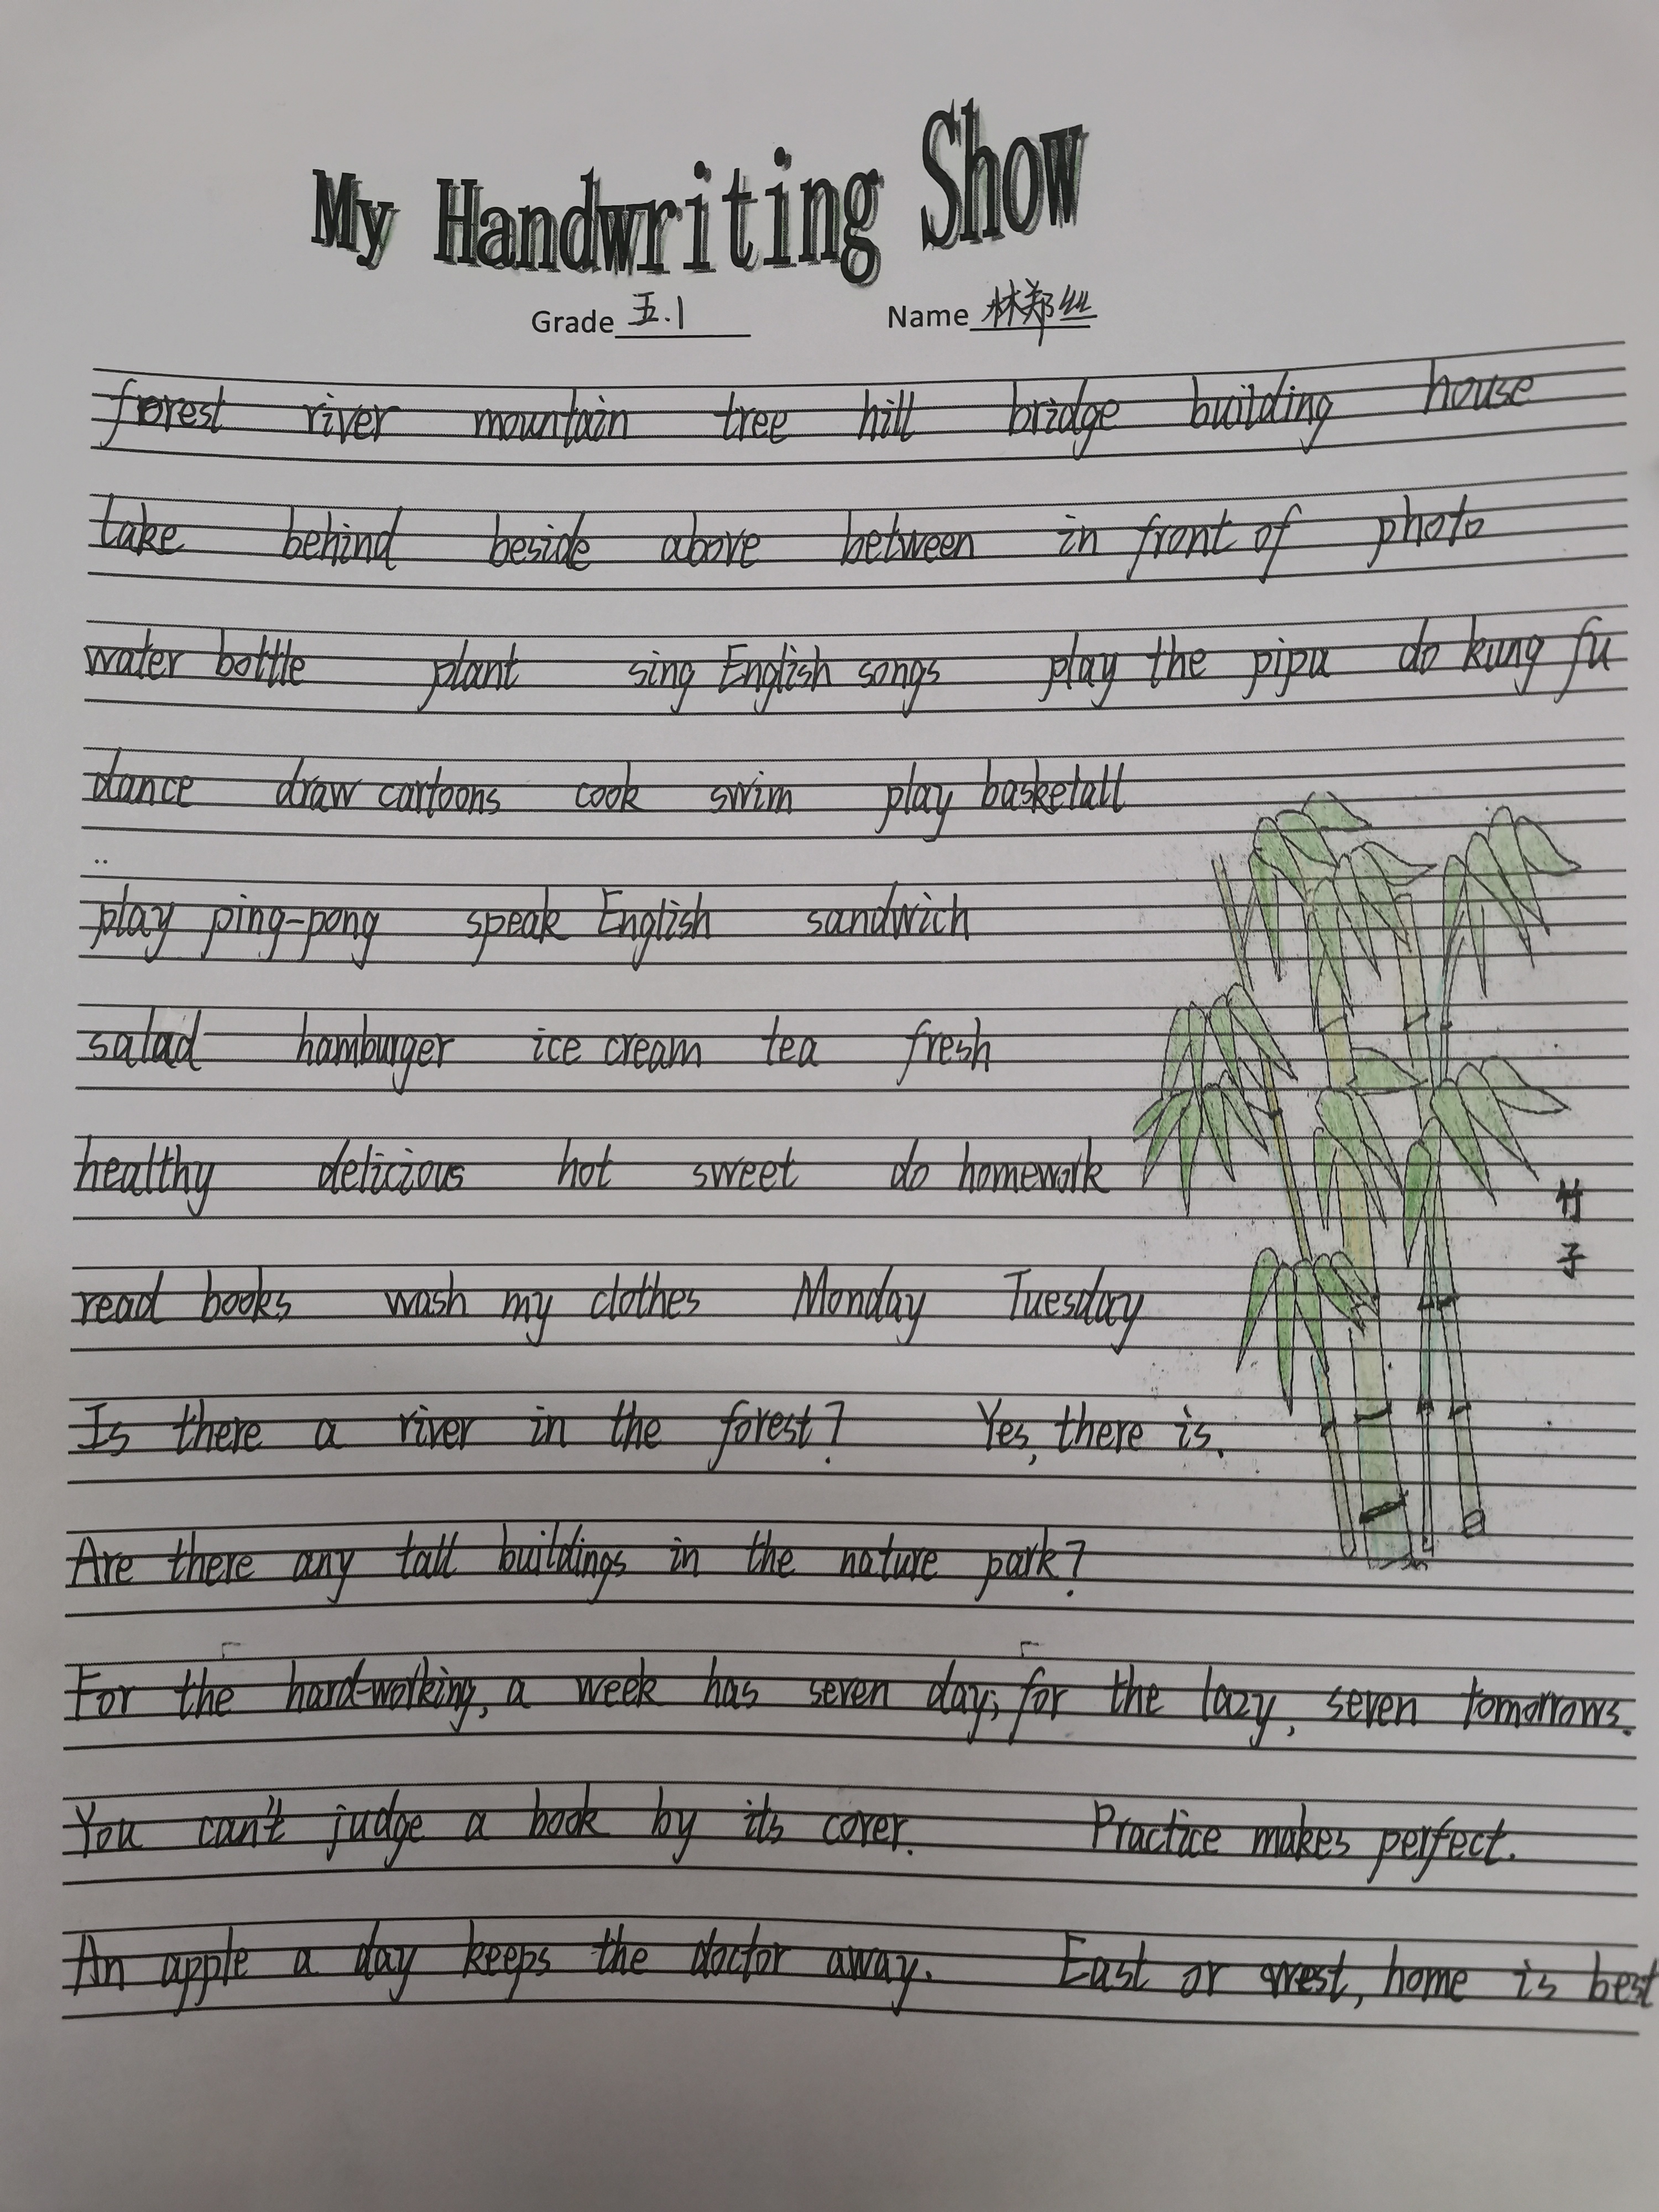 My Handwriting Show
Grade 五.1 Name 林郑丝
forest river mountain tree hill bridge building house
take behind beside above between in front of photo
water bottle plant sing English songs play the pipa do kung fu
dance draw cartoons cook swim play basketall
play ping-pong speak English sandwich
salad hamburger ice cream tea fresh
healthy delicious hot sweet do homework
竹子
read books wash my clothes Monday Tuesday
Is there a river in the forest? Yes, there is.
Are there any tall buildings in the nature park?
For the hard-working, a week has seven day; for the lazy, seven tomorrows.
You can't judge a book by its cover. Practice makes perfect.
An apple a day keeps the doctor away. East or west, home is best